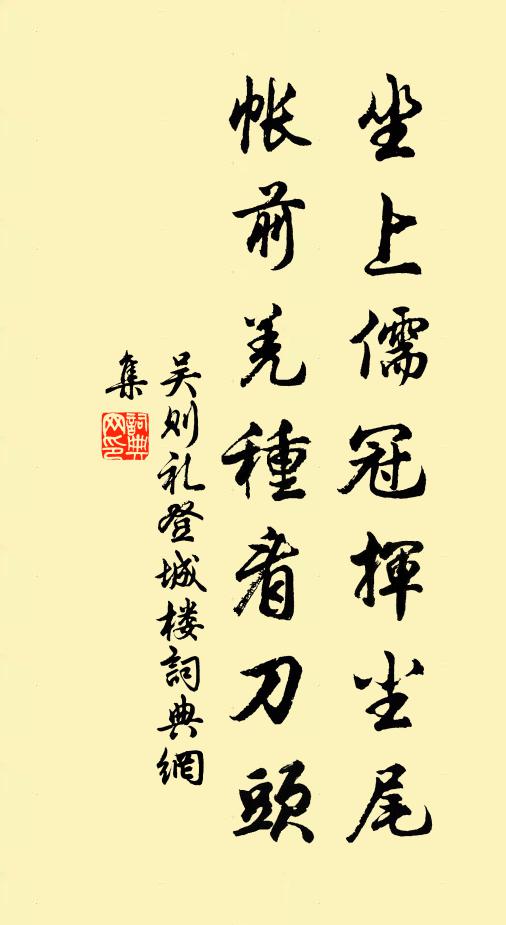 坐上儒冠揮尘尾
帐前羌種看刀頭
吴则礼登城楼詞典網
集
詞典
网印